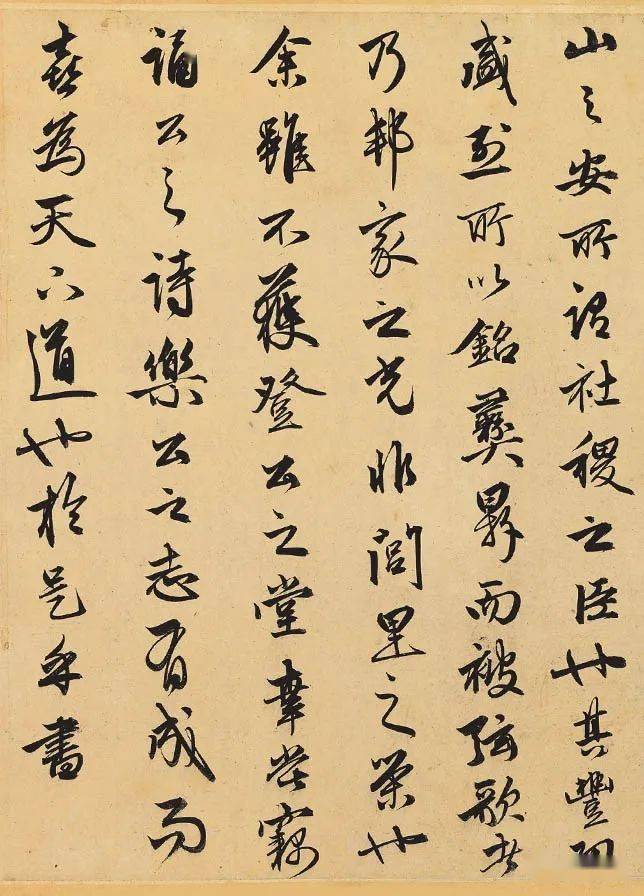 山之安所謂社稷之臣也其豐
盛烈所以銘彝鼎而被弦歌者
乃邦家之光非閭里之榮也
余雖不獲登公之堂幸嘗竊
誦公之詩樂公之志有成而
喜為天下道也於是乎書